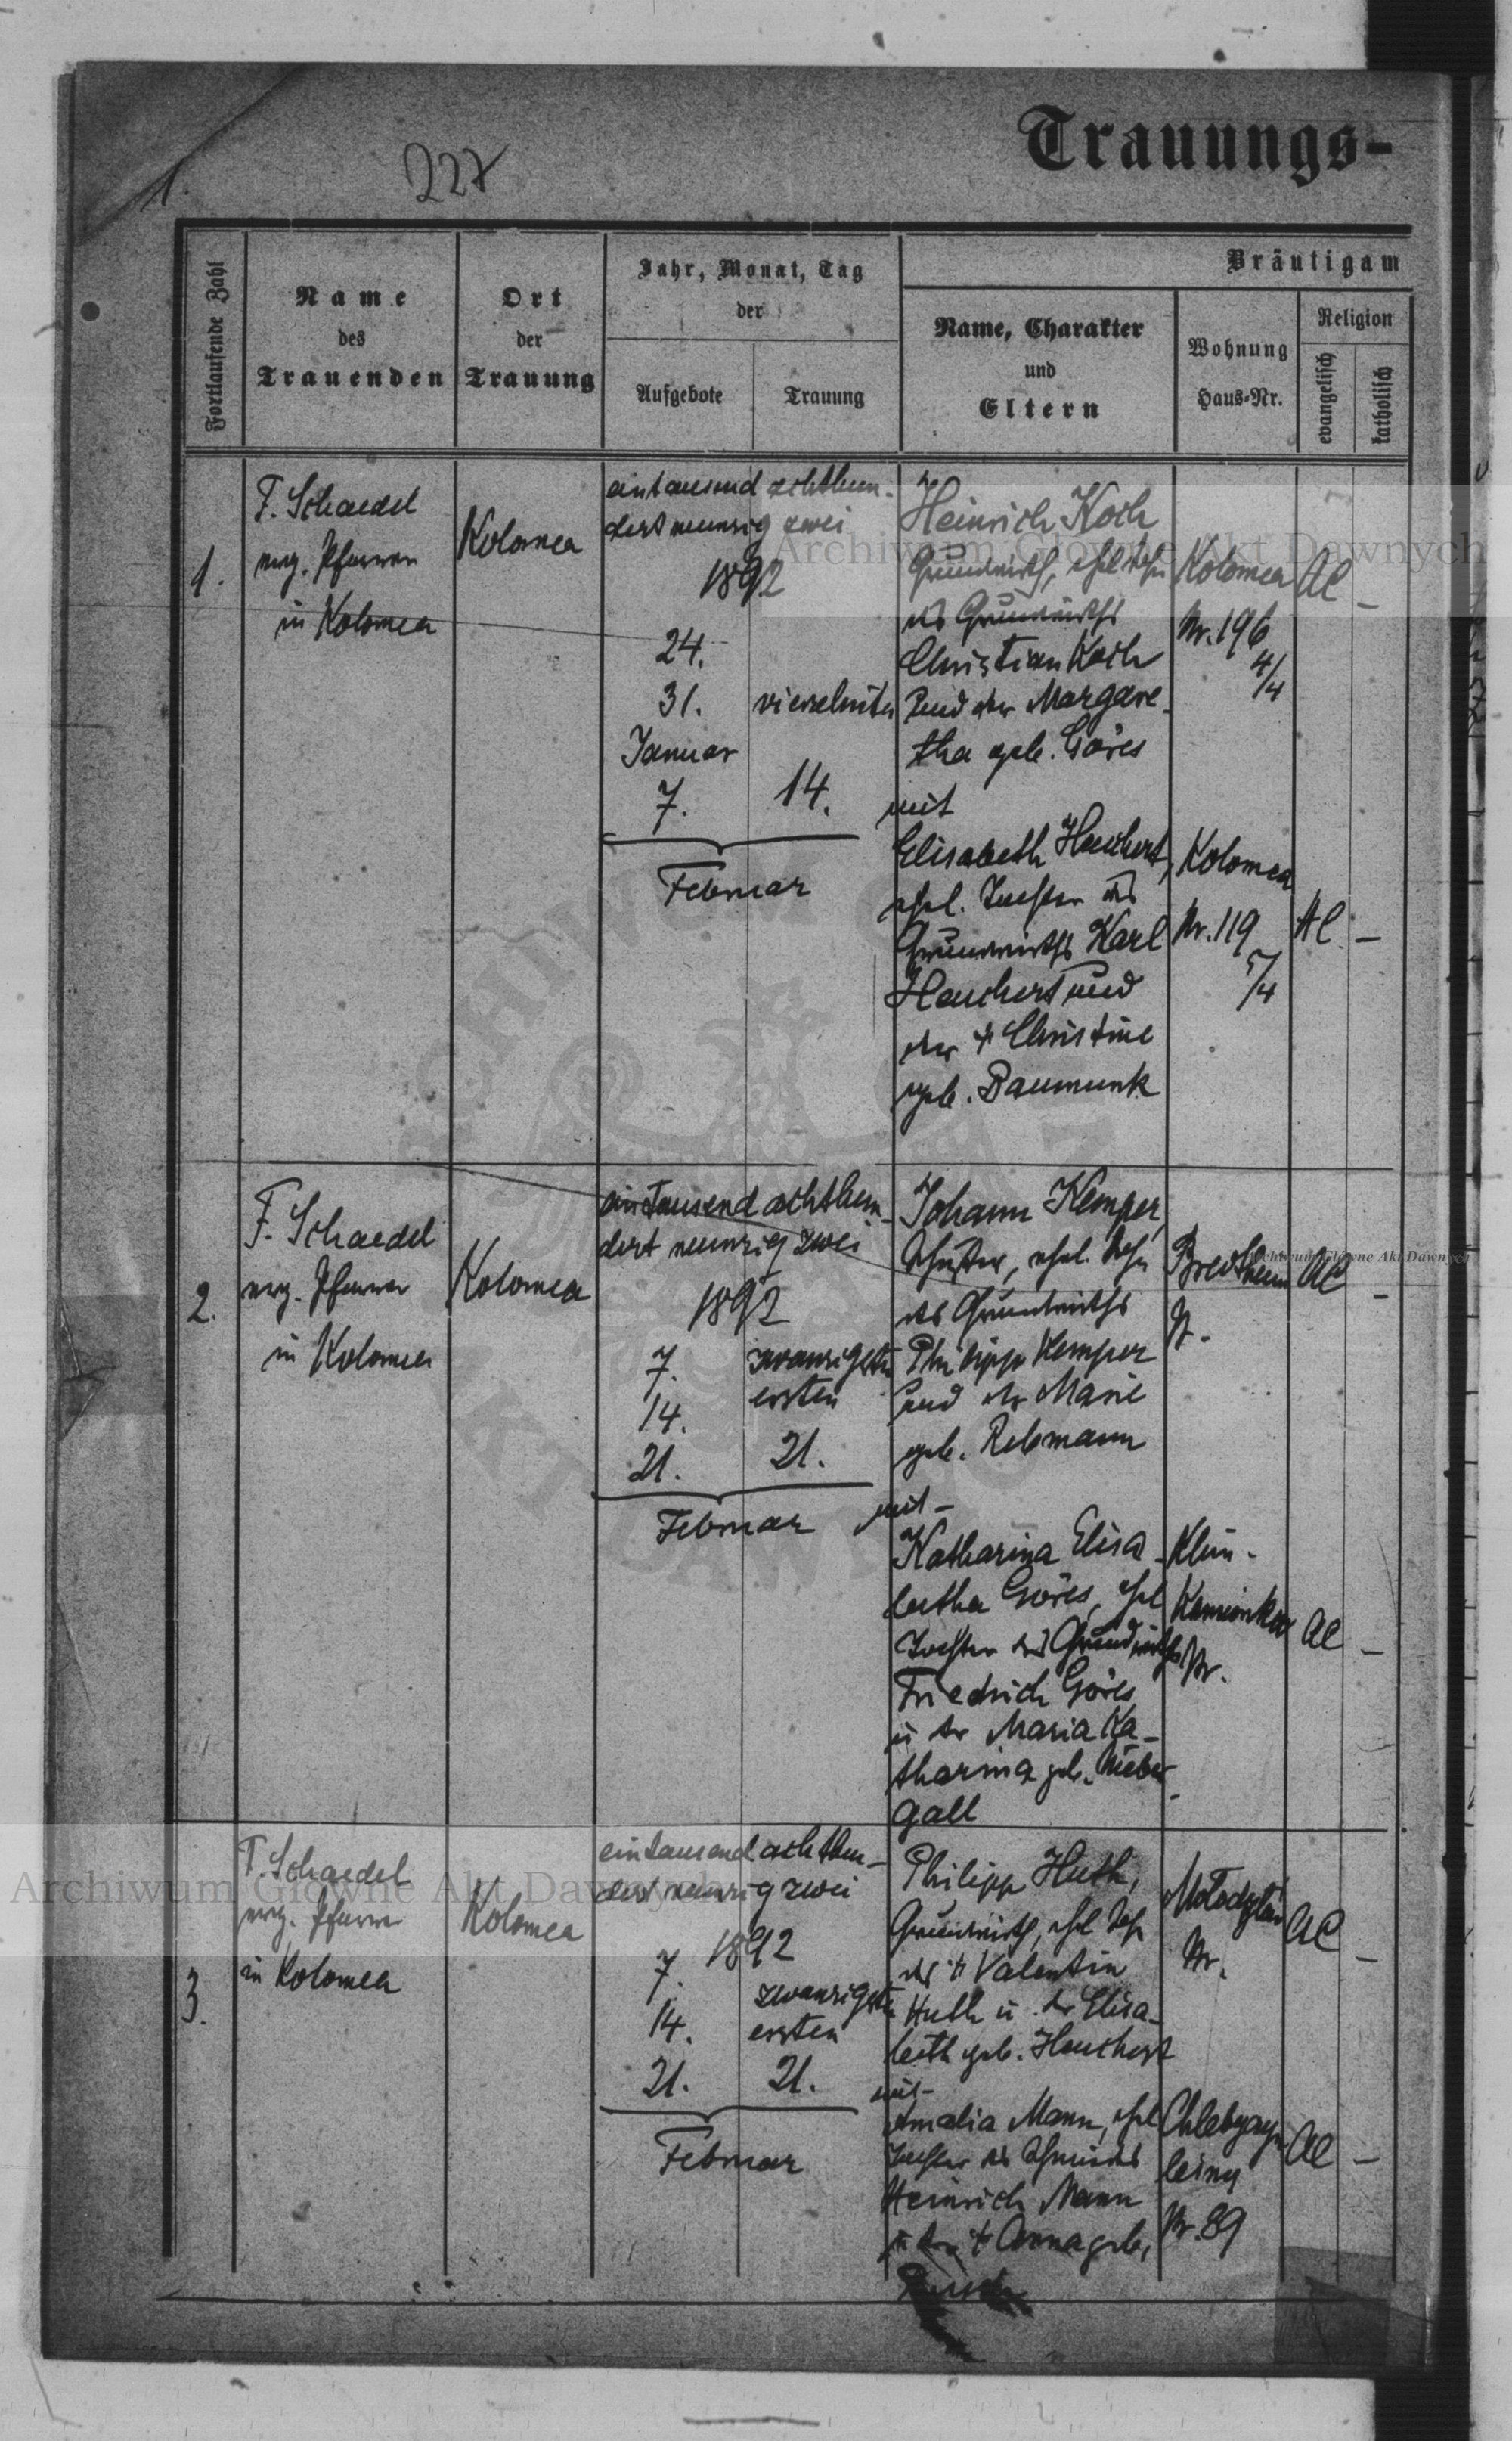 Trauungs-
227
1.
Fortlaufende Zahl
Name
des
Trauenden
Ort
der
Trauung
Jahr, Monat, Tag
der
Aufgebote
Trauung
Bräutigam
Name, Charakter
und
Eltern
Wohnung
Haus-Nr.
Religion
evangelisch
katholisch
1.
F. Schaedel
evg. Pfarrer
in Kolomea
Kolomea
eintausend achthun-
dert neunzig zwei
1892
24.
31.
Januar
7.
vierzehnten
14.
Februar
Heinrich Koch
Grundwirth, ehel Sohn
des Grundwirths
Christian Koch
und der Margare-
tha geb. Göres
mit
Elisabeth Hauchert,
ehel. Tochter des
Grundwirths Karl
Hauchert und
der † Christine
geb. Baumunk
Kolomea
Nr. 196
4/4
AC
-
Kolomea
Nr. 119
5/4
AC
-
2.
F. Schaedel
evg. Pfarrer
in Kolomea
Kolomea
eintausend achthun-
dert neunzig zwei
1892
7.
14.
21.
zwanzigsten
ersten
21.
Februar
Johann Kemper,
Schuster, ehel. Sohn
des Grundwirths
Philipp Kemper
und der Marie
geb. Rebmann
mit-
Katharina Elisa-
betha Göres, ehel
Tochter des Grundwirths
Friedrich Göres
u der Maria Ka-
tharina geb. Nieber-
gall
Bredtheim
AC
-
Kamionka
Nr.
AC
-
3.
F. Schaedel
evg. Pfarrer
in Kolomea
Kolomea
eintausend achthun-
dert neunzig zwei
1892
7.
14.
21.
zwanzigsten
ersten
21.
Februar
Philipp Huth,
Grundwirth, ehel Sohn
des † Valentin
Huth u der Elisa-
beth geb. Hauchert
mit-
Amalia Mann, ehel
Tochter des Schmiedes
Heinrich Mann
u der † Anna geb.
Nr.
AC
-
leśny
Nr. 89
AC
-
Archiwum Główne Akt Dawnych
Archiwum Główne Akt Dawnych
Archiwum Główne Akt Dawnych